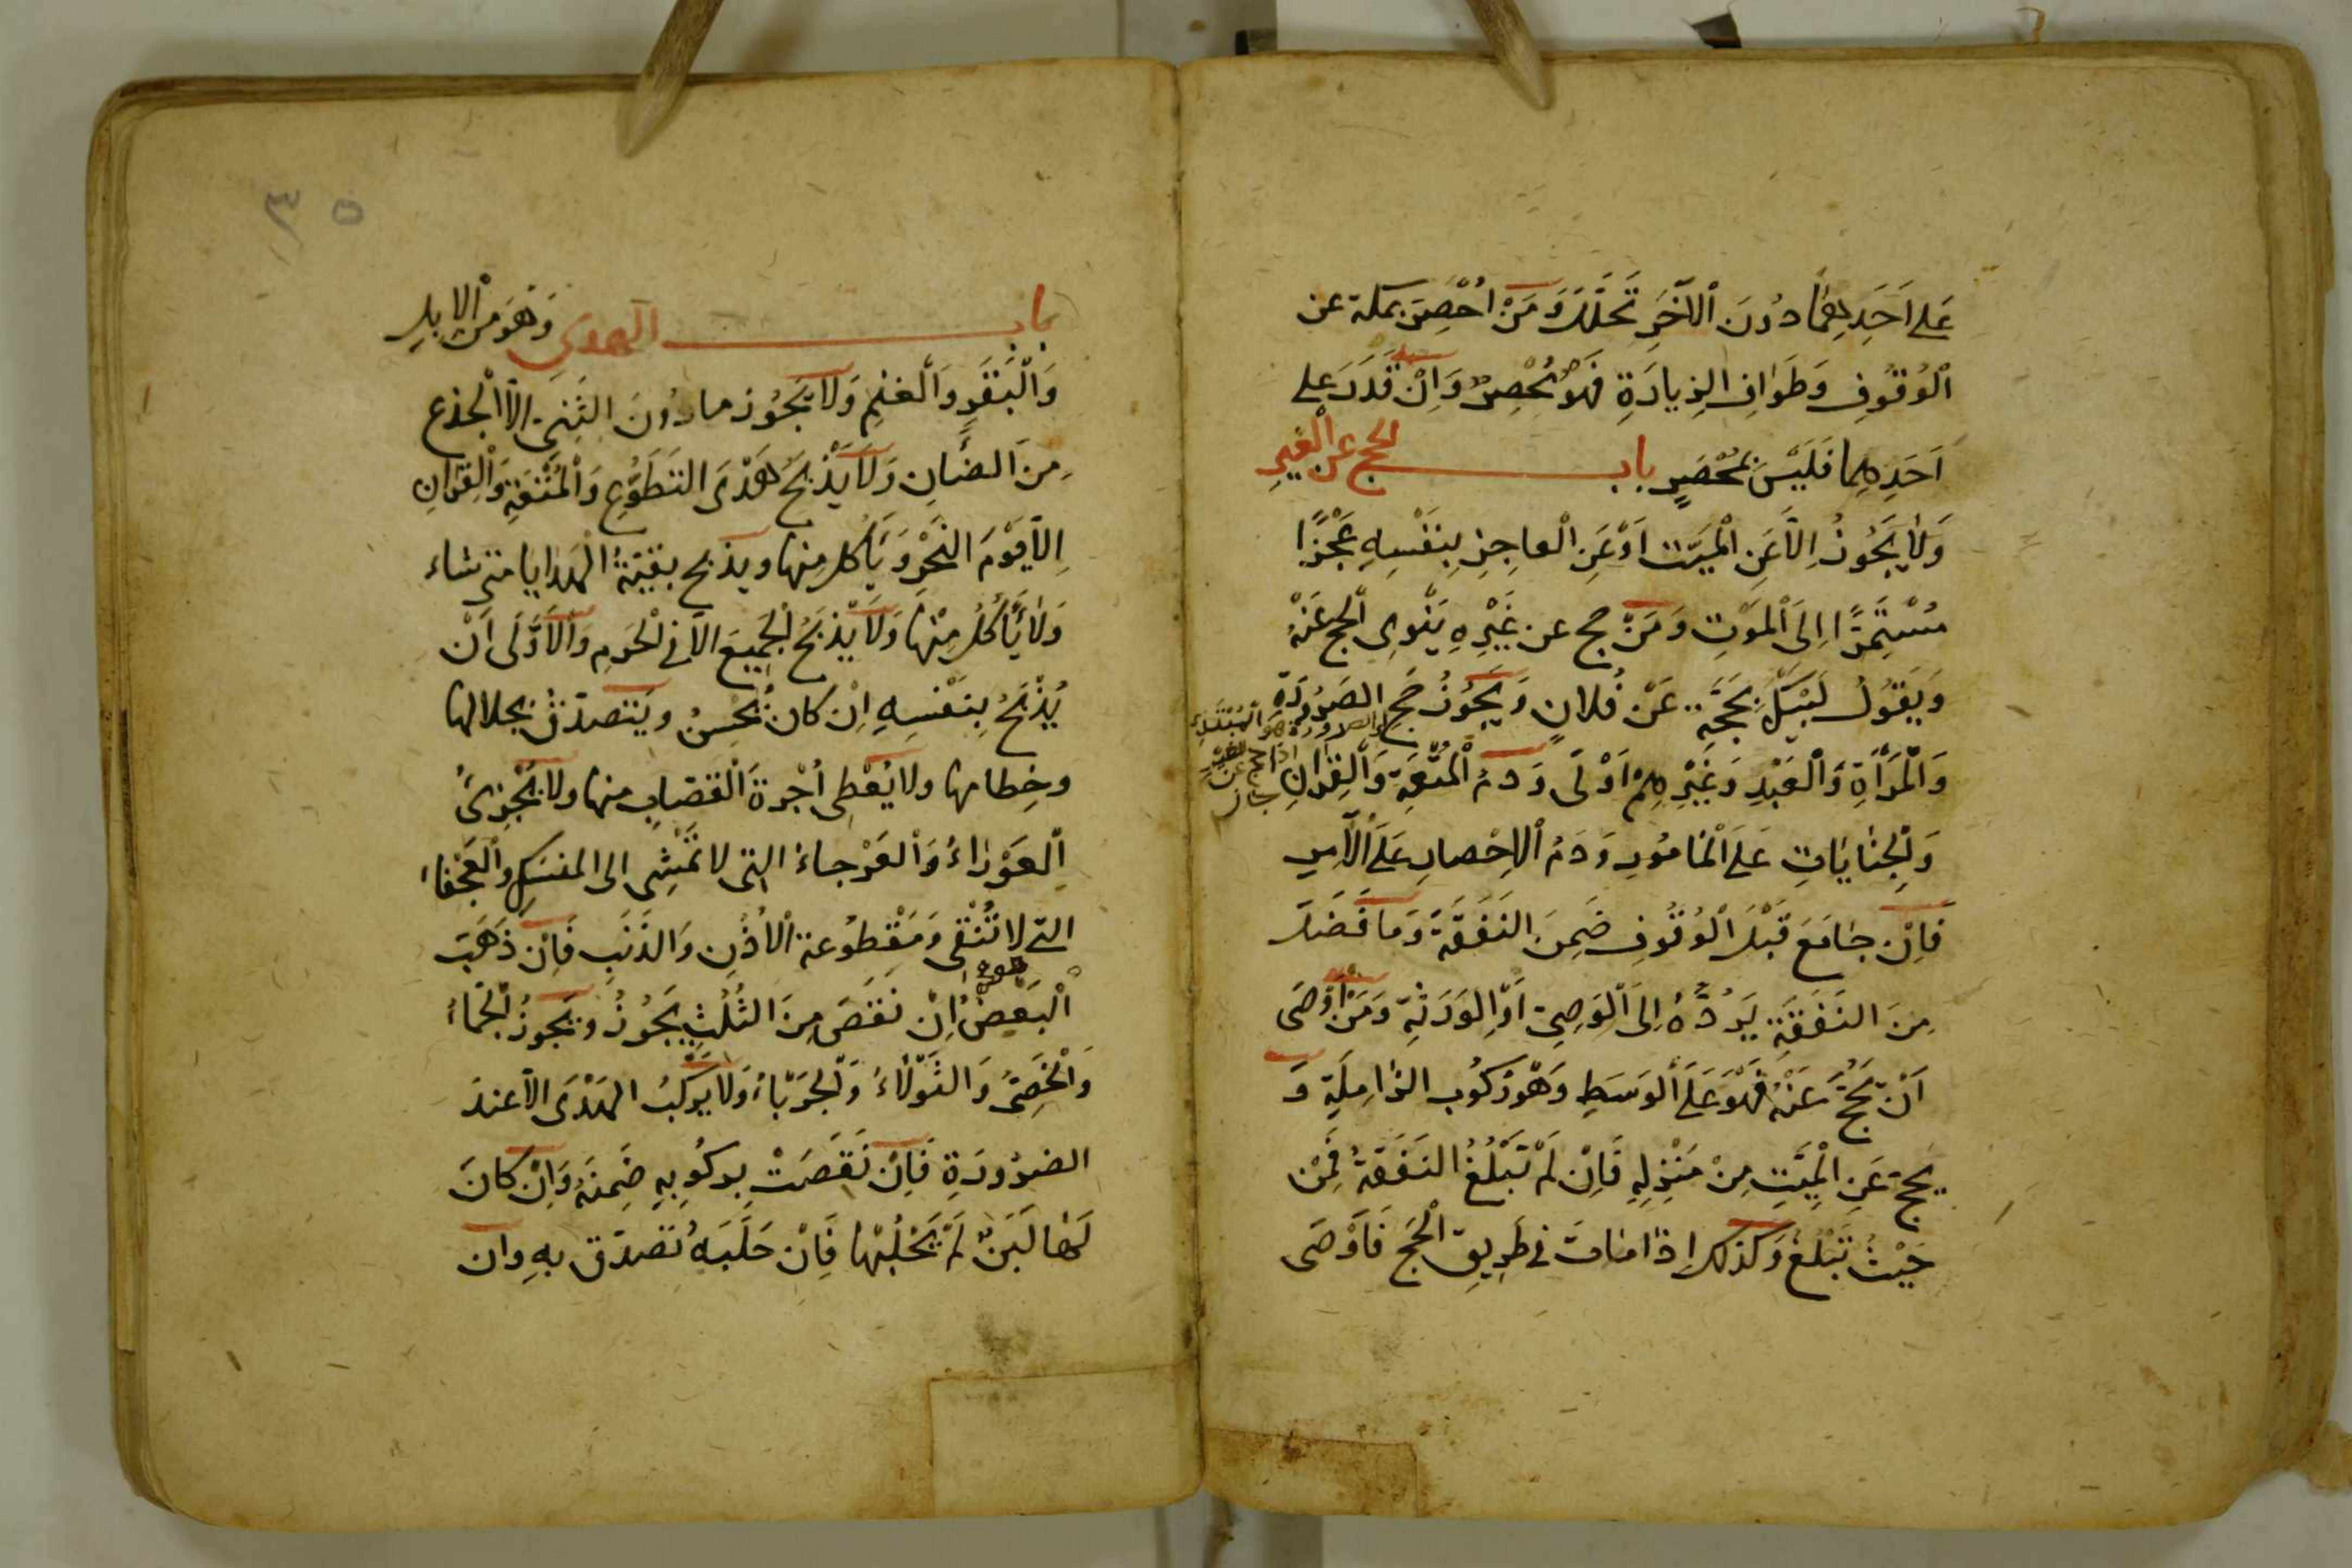 عَلى اَحَدِهِمَا دُونَ اْلآخَرِ تَحَلَّلَ وَمَنْ اُحْصِرَ بمكة عن
اْلوُقُوفِ وَطَوَافِ الزِيادَةِ فَهُوَ مُحْصِرٌ وَاِنْ قَدَرَ على
اَحَدِهِما فَلَيْسَ بمُحْصَرٍ باب الحج عن الْغَيرِ
وَلاَ يَجُوزُ اِلاَّ عَنِ الْمَيّتِ اَوْ عَنِ الْعاجِزِ بِنَفْسِهِ عَجْزًا
مُسْتَمِرًّا اِلىَ اْلمَوْتِ وَمَنْ حج عن غَيْرِهِ يَنْوِى اْلحج عَنْهُ
وَيَقُولُ لَبَّيْكَ بِحَجَّةٍ عَنْ فُلانٍ وَيَجُوزُ حَج الصَرُورَةِ
وَالْمَرْأَةِ وَالْعَبْدِ وَغَيْرِهِمْ اَوْلَى وَدَمُ الْمُتْعَةِ وَالْقِرَانِ
وَالْجِنَايَاتِ عَلَى اْلمَامُورِ وَدَمُ الْاِحْصارِ عَلَى اْلآمِرِ
فَاِنْ جَامَعَ قَبْلَ الْوُقُوفِ ضَمِنَ النَفَقَةَ وَمَا فَضَلَ
مِنَ النَفَقَةِ يَرُدُّهُ اِلىَ الْوَصِيّ اَوِ الْوَرَثَةِ وَمَنْ اَوْصَى
اَنْ يُحَجَّ عَنْهُ فَهُوَ عَلَى الْوَسَطِ وَهُوَ رُكُوب الزَامِلَةِ وَ
يحج عَنِ الْمَيِّتِ مِنْ مَنْزِلِهِ فَاِنْ لَمْ تَبْلُغُ النَفَقَةُ فَمِنْ
حَيْثُ تَبْلُغُ وَكذلك اِذَا مَاتَ فى طَرِيقِ الْحَج فَاَوْصَى
والصرورة هو المبتدئ
اذا حج عن الغير
جاز
٣٥
باب الهدى وَهُوَ مِنَ الْاِبِلِ
وَالْبَقَرِ وَالْغَنَمِ وَلاَ يَجُوز ما دُونَ الثَنِىّ اِلاَّ الْجذع
مِنَ الضَّانِ وَلاَ يَذْبَحُ هَدْىَ التَطَوُّعِ وَاْلمُتْعَةِ وَالْقِرَانِ
اِلاَّ يَوْمَ النَحْرِ وَيَأكل مِنها ويذبح بقيّةَ الهدايا متى شاء
وَلاَ يَأكُلُ مِنْها وَلاَ يَذْبَحُ الْجَمِيعَ الاّ فى الْحَرم وَالْاَوْلَى اَنْ
يُذْبَحُ بِنَفْسِهِ اِنْ كانَ يُحْسِنُ وَيَتَصدّقُ بجلالها
وخِطامها ولا يُعْطِى اُجْرَةَ الْقَصّابِ منها ولا يُجْزِئُ
الْعَوْرَاءُ وَالْعَرْجاءُ التى لا تَمْشِى الى المنسَكِ والْعَجْفاء
التى لا تُنْقِى وَمَقْطُوعة الْاُذُنِ وَالذَنَبِ فَاِنْ ذَهَبَ
الْبَعْضُ اِنْ نَقَصَ مِنَ الثُلُثِ يَجُوزُ وَيَجوزُ الْجَمَّاءُ
وَالْخَصِىُّ وَالثَوْلاَءُ وَالْجَرْبَاءُ وَلاَ يَرْكَبُ الْهَدْىَ اِلاَّ عندَ
الضرُورَةِ فَاِنْ نَقَصَتْ بِركُوبِهِ ضَمِنَهُ وَاِنْ كانَ
لَهَا لَبَنٌ لَمْ يَحْلُبْها فَاِنْ حَلَبَهُ تَصدّق بِهِ وان